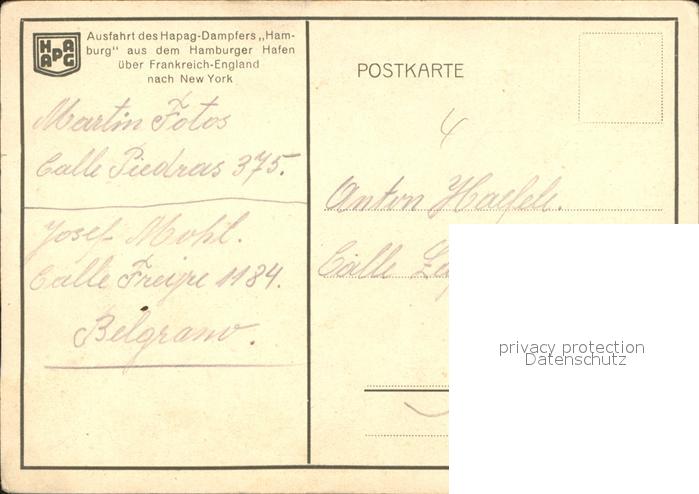 HAPAG
Ausfahrt des Hapag-Dampfers „Ham-
burg" aus dem Hamburger Hafen
über Frankreich-England
nach New York
POSTKARTE
Martin Fotos
Calle Piedras 375.
Josef Mohl.
Calle Freire 1184.
Belgrano.
4
Anton Haefele.
Calle
privacy protection
Datenschutz